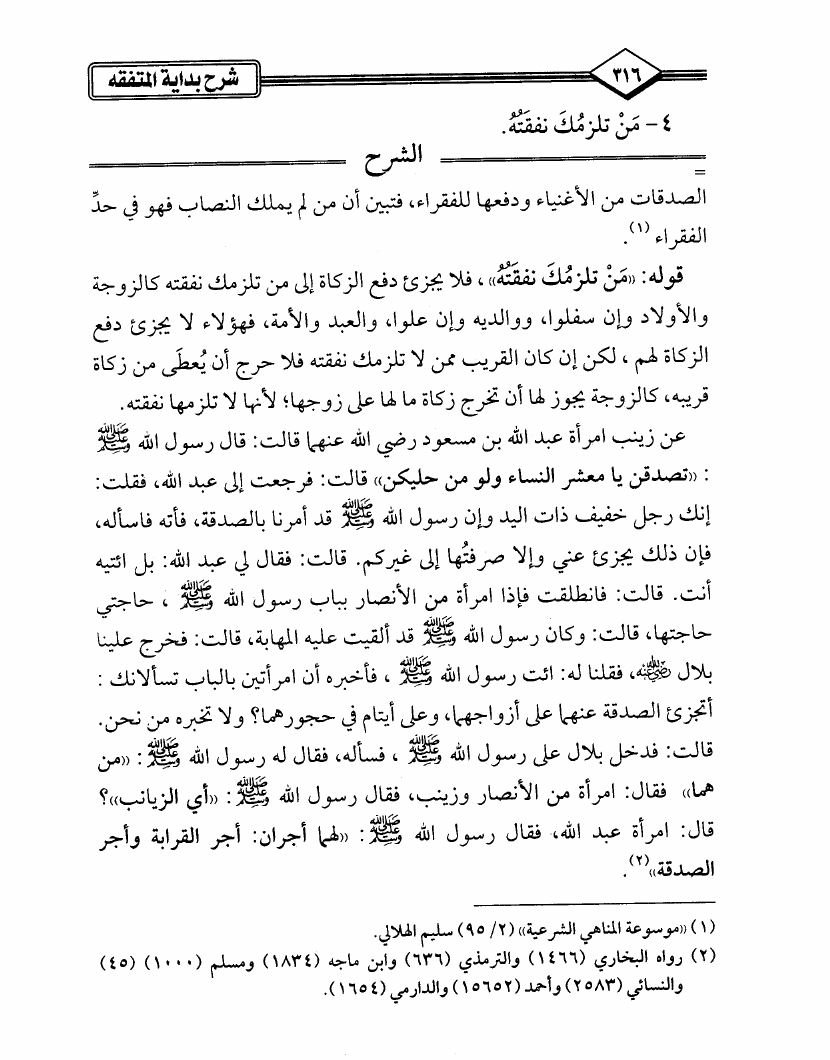 شرح بداية المتفقه
٣١٦
٤- مَنْ تلزمُكَ نفقتُهُ.
الشرح
الصدقات من الأغنياء ودفعها للفقراء، فتبين أن من لم يملك النصاب فهو في حدِّ
الفقراء (١).
قوله: «مَنْ تلزمُكَ نفقَتُهُ»، فلا يجزئ دفع الزكاة إلى من تلزمك نفقته كالزوجة
والأولاد وإن سفلوا، ووالديه وإن علوا، والعبد والأمة، فهؤلاء لا يجزئ دفع
الزكاة لهم، لكن إن كان القريب ممن لا تلزمك نفقته فلا حرج أن يُعطَى من زكاة
قريبه، كالزوجة يجوز لها أن تخرج زكاة ما لها على زوجها؛ لأنها لا تلزمها نفقته.
عن زينب امرأة عبد الله بن مسعود رضي الله عنهما قالت: قال رسول الله ﷺ
: «تصدقن يا معشر النساء ولو من حليكن» قالت: فرجعت إلى عبد الله، فقلت:
إنك رجل خفيف ذات اليد وإن رسول الله ﷺ قد أمرنا بالصدقة، فأته فاسأله،
فإن ذلك يجزئ عني وإلا صرفتُها إلى غيركم. قالت: فقال لي عبد الله: بل ائتيه
أنت. قالت: فانطلقت فإذا امرأة من الأنصار بباب رسول الله ﷺ ، حاجتي
حاجتها، قالت: وكان رسول الله ﷺ قد ألقيت عليه المهابة، قالت: فخرج علينا
بلال رضي الله عنه، فقلنا له: ائت رسول الله ﷺ ، فأخبره أن امرأتين بالباب تسألانك :
أتجزئ الصدقة عنهما على أزواجهما، وعلى أيتام في حجورهما؟ ولا تخبره من نحن.
قالت: فدخل بلال على رسول الله ﷺ ، فسأله، فقال له رسول الله ﷺ: «من
هما» فقال: امرأة من الأنصار وزينب، فقال رسول الله ﷺ: «أي الزيانب»؟
قال: امرأة عبد الله، فقال رسول الله ﷺ: «لهما أجران: أجر القرابة وأجر
الصدقة»(٢).
(١) «موسوعة المناهي الشرعية» (٢/ ٩٥) سليم الهلالي.
(٢) رواه البخاري (١٤٦٦) والترمذي (٦٣٦) وابن ماجه (١٨٣٤) ومسلم (١٠٠٠) (٤٥)
والنسائي (٢٥٨٣) وأحمد (١٥٦٥٢) والدارمي (١٦٥٤).